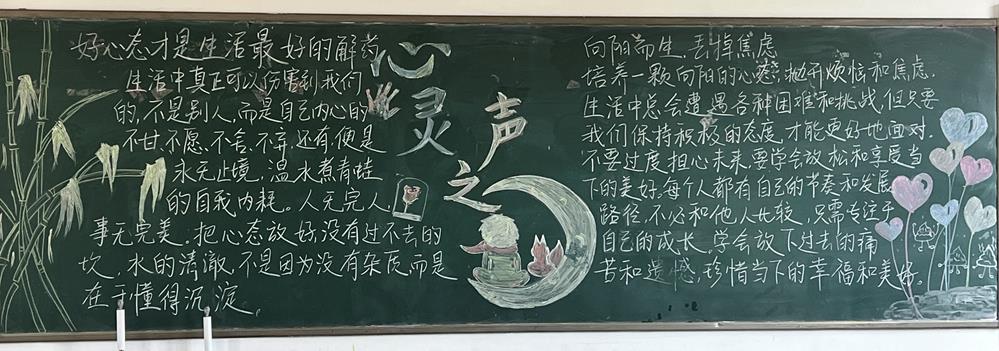 好心态才是生活最好的解药
生活中真正可以伤害到我们
的,不是别人,而是自己内心的
不甘、不愿、不舍、不弃,还有便是
永无止境,温水煮青蛙
的自我内耗。人无完人,
事无完美,把心态放好,没有过不去的
坎,水的清澈,不是因为没有杂质,而是
在于懂得沉淀。
心灵之声
向阳而生,丢掉焦虑
培养一颗向阳的心态,抛开烦恼和焦虑.
生活中总会遭遇各种困难和挑战,但只要
我们保持积极的态度,才能更好地面对.
不要过度担心未来,要学会放松和享受当
下的美好。每个人都有自己的节奏和发展
路径,不必和他人比较,只需专注于
自己的成长,学会放下过去的痛
苦和遗憾,珍惜当下的幸福和美好。